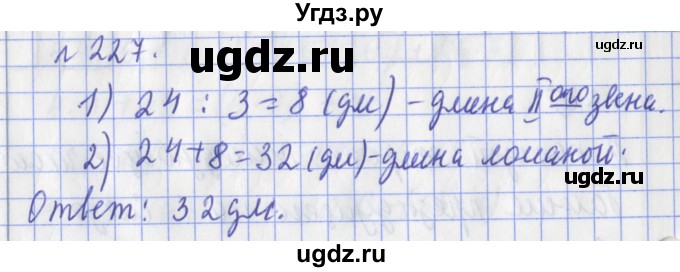 Угдз.ру
uгдз.ru
№ 227.
1) 24 : 3 = 8 (дм) - длина II ого звена.
uгдз.ru
2) 24 + 8 = 32 (дм) - длина ломаной.
Ответ: 32 дм.
uгдз.ru